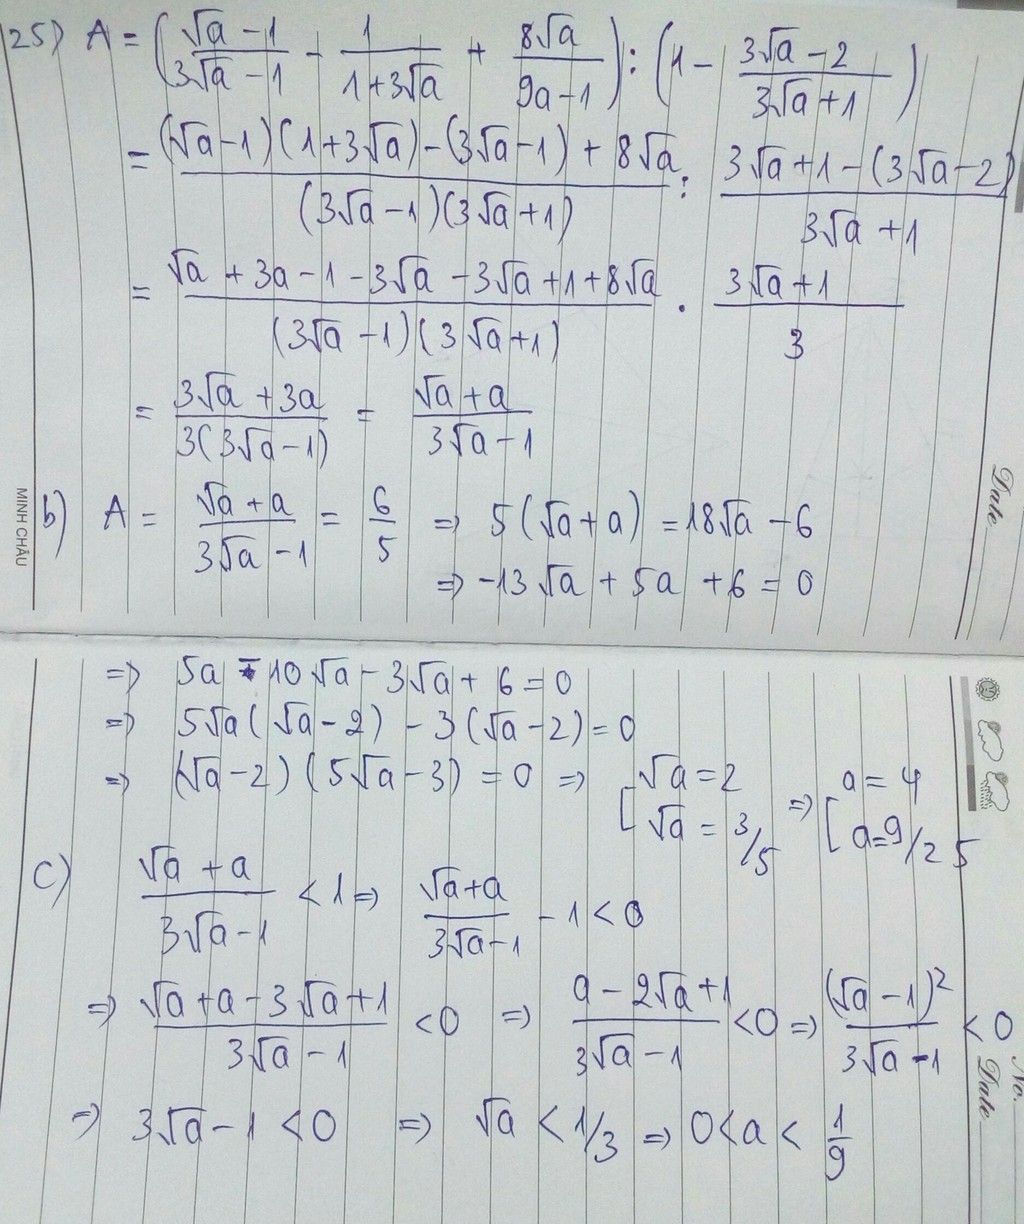 25) A = (√a - 1 / 3√a - 1 - 1 / 1 + 3√a + 8√a / 9a - 1) : (1 - 3√a - 2 / 3√a + 1)
= (√a - 1)(1 + 3√a) - (3√a - 1) + 8√a / (3√a - 1)(3√a + 1) : 3√a + 1 - (3√a - 2) / 3√a + 1
= √a + 3a - 1 - 3√a - 3√a + 1 + 8√a / (3√a - 1)(3√a + 1) . 3√a + 1 / 3
= 3√a + 3a / 3(3√a - 1) = √a + a / 3√a - 1
b) A = √a + a / 3√a - 1 = 6/5 => 5(√a + a) = 18√a - 6
=> -13√a + 5a + 6 = 0
=> 5a - 10√a - 3√a + 6 = 0
=> 5√a(√a - 2) - 3(√a - 2) = 0
=> (√a - 2)(5√a - 3) = 0 => [ √a = 2 => [ a = 4
√a = 3/5 a = 9/25
c) √a + a / 3√a - 1 < 1 => √a + a / 3√a - 1 - 1 < 0
=> √a + a - 3√a + 1 / 3√a - 1 < 0 => a - 2√a + 1 / 3√a - 1 < 0 => (√a - 1)² / 3√a - 1 < 0
=> 3√a - 1 < 0 => √a < 1/3 => 0 < a < 1/9
MINH CHÂU
Date
No.
Date